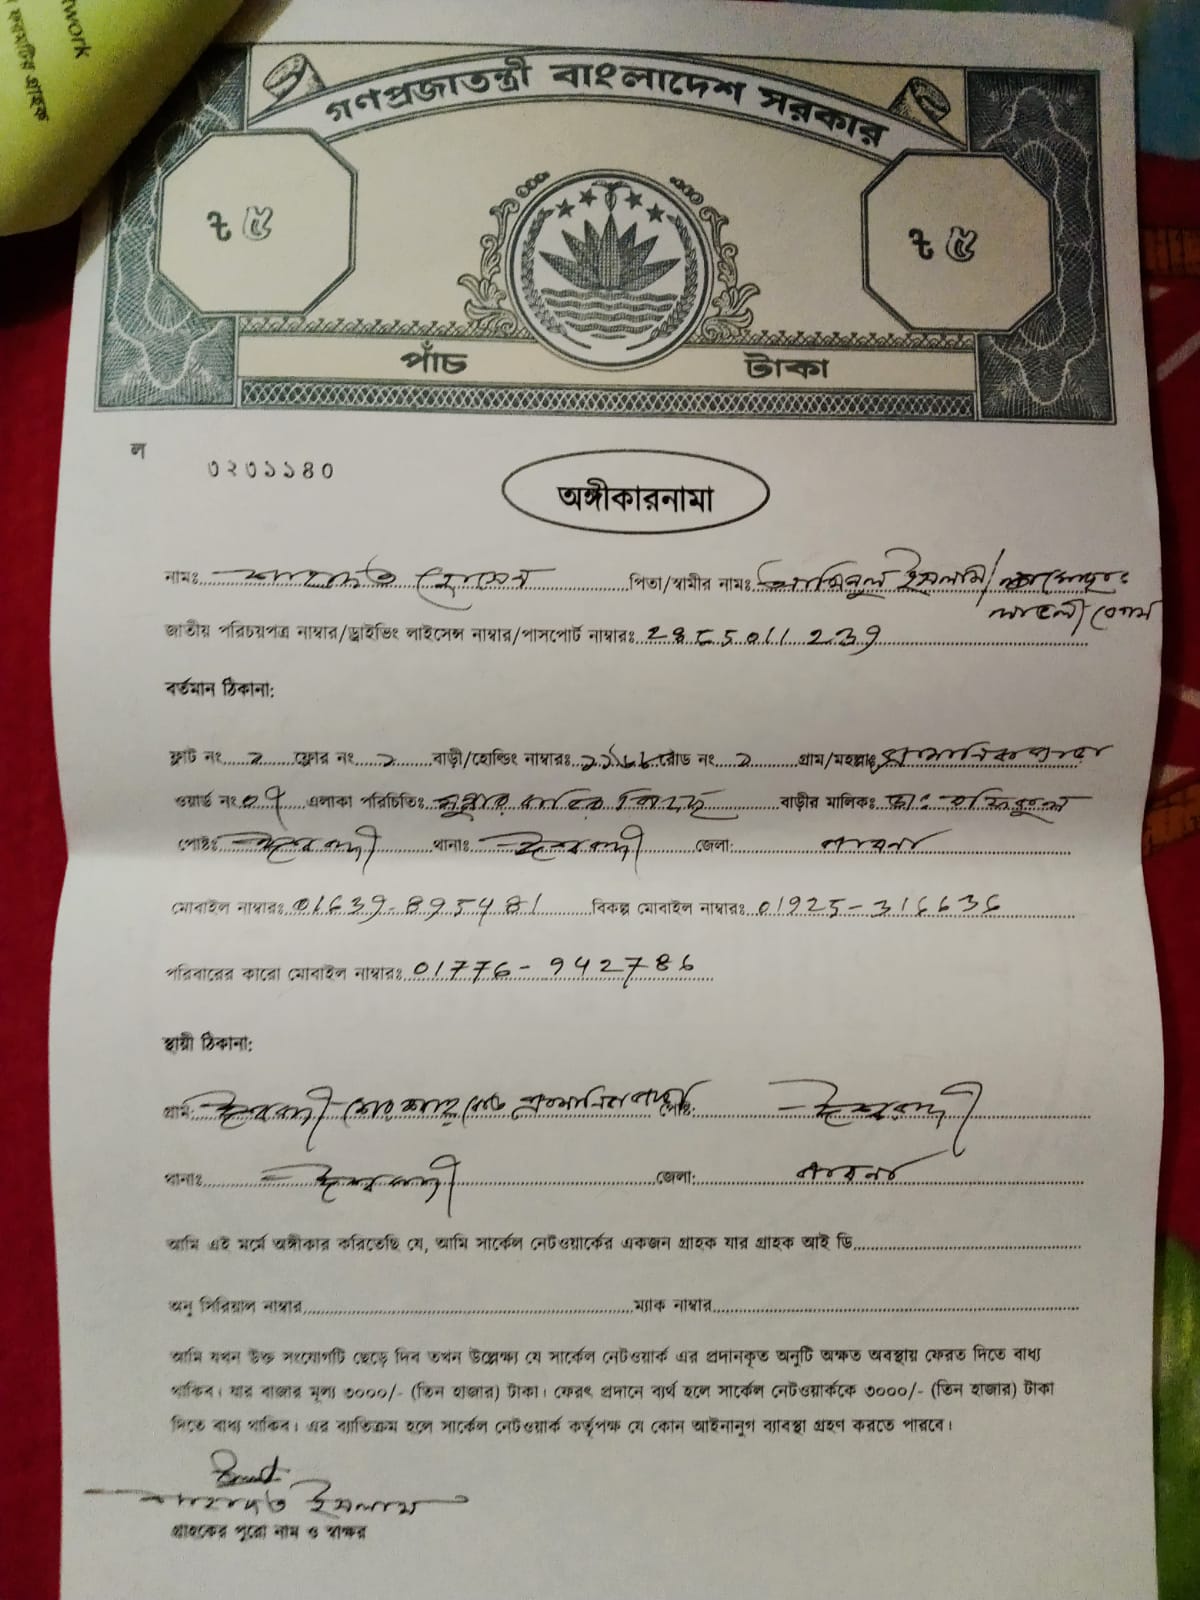 twork
ফরমটির গ্রাহক
গণপ্রজাতন্ত্রী বাংলাদেশ সরকার
৳ ৫
৳ ৫
পাঁচ টাকা
ল
৩২৩১১৪০
অঙ্গীকারনামা
নামঃ শাহাদাত হোসেন পিতা/স্বামীর নামঃ আমিনুল ইসলাম/
বেগম
জাতীয় পরিচয়পত্র নাম্বার/ড্রাইভিং লাইসেন্স নাম্বার/পাসপোর্ট নাম্বারঃ
বর্তমান ঠিকানা:
ফ্লাট নং ২ ফ্লোর নং ২ বাড়ী/হোল্ডিং নাম্বারঃ রোড নং ২ গ্রাম/মহল্লাঃ
ওয়ার্ড নং ০৭ এলাকা পরিচিতিঃ বাড়ীর মালিকঃ
পোষ্টঃ ঈশ্বরদী থানাঃ ঈশ্বরদী জেলা: পাবনা
মোবাইল নাম্বারঃ 01639-895481 বিকল্প মোবাইল নাম্বারঃ 01925-316636
পরিবারের কারো মোবাইল নাম্বারঃ 01776-942786
স্থায়ী ঠিকানা:
গ্রাম: ঈশ্বরদী পোষ্ট: ঈশ্বরদী
থানাঃ ঈশ্বরদী জেলা: পাবনা
আমি এই মর্মে অঙ্গীকার করিতেছি যে, আমি সার্কেল নেটওয়ার্কের একজন গ্রাহক যার গ্রাহক আই ডি
অনু সিরিয়াল নাম্বার ম্যাক নাম্বার
আমি যখন উক্ত সংযোগটি ছেড়ে দিব তখন উল্লেক্ষ্য যে সার্কেল নেটওয়ার্ক এর প্রদানকৃত অনুটি অক্ষত অবস্থায় ফেরত দিতে বাধ্য
থাকিব। যার বাজার মূল্য ৩০০০/- (তিন হাজার) টাকা। ফেরৎ প্রদানে ব্যর্থ হলে সার্কেল নেটওয়ার্ককে ৩০০০/- (তিন হাজার) টাকা
দিতে বাধ্য থাকিব। এর ব্যাতিক্রম হলে সার্কেল নেটওয়ার্ক কর্তৃপক্ষ যে কোন আইনানুগ ব্যাবস্থা গ্রহণ করতে পারবে।
শাহাদাত ইসলাম
গ্রাহকের পুরো নাম ও স্বাক্ষর